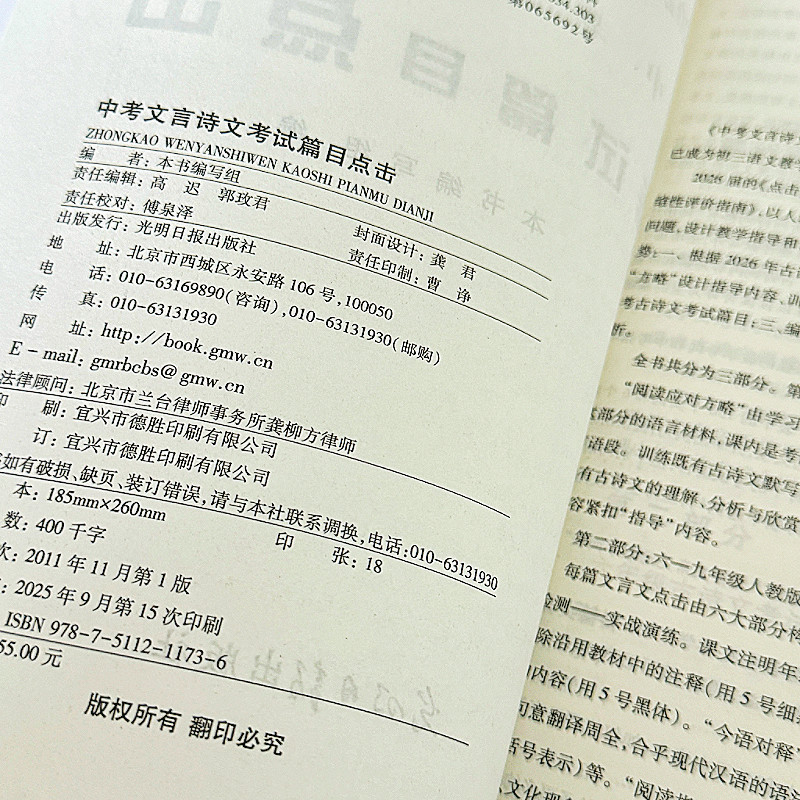 第065692号
中考文言诗文考试篇目点击
ZHONGKAO WENYANSHIWEN KAOSHI PIANMU DIANJI
编 者：本书编写组
责任编辑：高 迟 郭玫君
封面设计：龚 君
责任校对：傅泉泽
责任印制：曹 诤
出版发行：光明日报出版社
地 址：北京市西城区永安路106号，100050
电 话：010-63169890(咨询)，010-63131930(邮购)
传 真：010-63131930
网 址：http://book.gmw.cn
E-mail：gmrbcbs@gmw.cn
法律顾问：北京市兰台律师事务所龚柳方律师
印 刷：宜兴市德胜印刷有限公司
订：宜兴市德胜印刷有限公司
如有破损、缺页、装订错误，请与本社联系调换，电话：010-63131930
本：185mm×260mm
数：400千字
印 张：18
次：2011年11月第1版
2025年9月第15次印刷
ISBN 978-7-5112-1173-6
55.00元
版权所有 翻印必究
《中考文言诗
已成为初三语文教
2026届的《点击
问题，设计教学指导和
势：一、根据2026年古
方略”设计指导内容、训
考古诗文考试篇目；三、编
析。
全书共分为三部分。第
“阅读应对方略”由学习
部分的语言材料，课内是考
语段。训练既有古诗文默写
有古诗文的理解、分析与欣赏
容紧扣“指导”内容。
第二部分：六—九年级人教版
每篇文言文点击由六大部分构
检测——实战演练。课文注明年
除沿用教材中的注释（用5号细
内容（用5号黑体）。“今语对释
句意翻译周全，合乎现代汉语的语
括号表示）等。“阅读